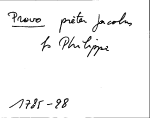 Provo pièter Jacobus
fs Philippe
1785-98